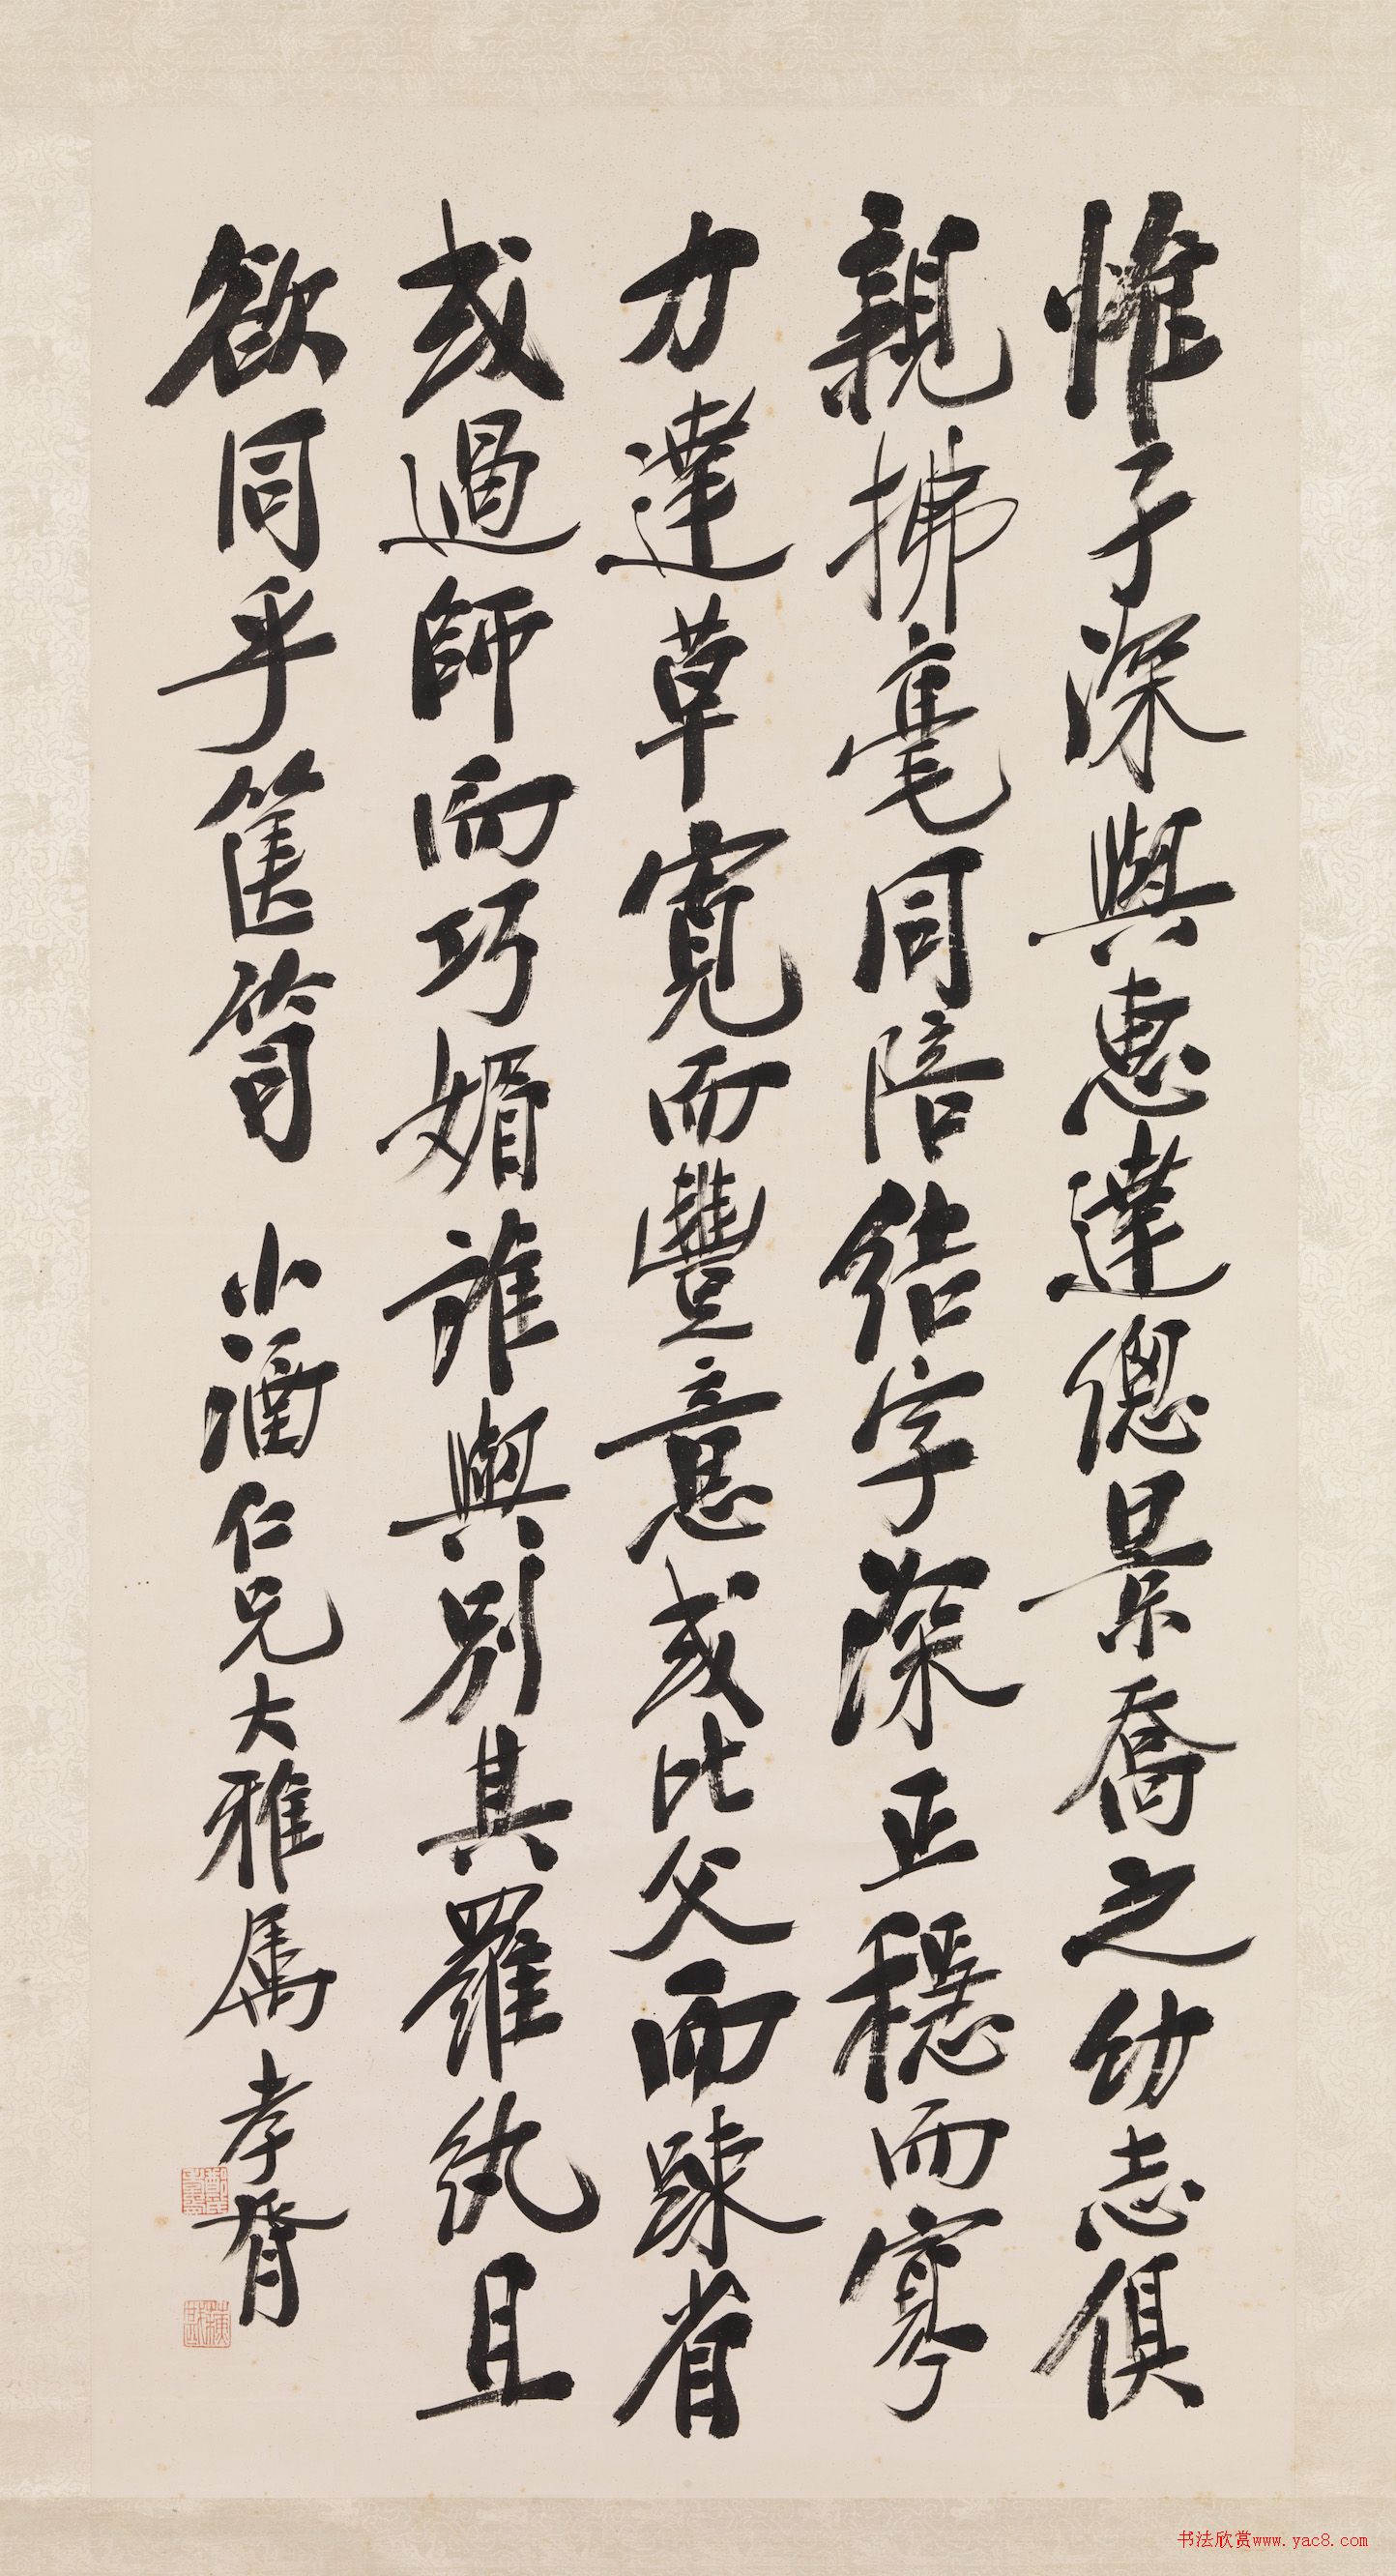 惟子深與惠達偲景喬之幼志俱
親拂毫同陪結字深正穩而寡
力達草寬而豐意或比父而踈省
或過師而巧媚誰與別其羅紈且
欲同乎篋笥 小仁兄大雅属 孝胥
蘇戡
书法欣赏www.yac8.com